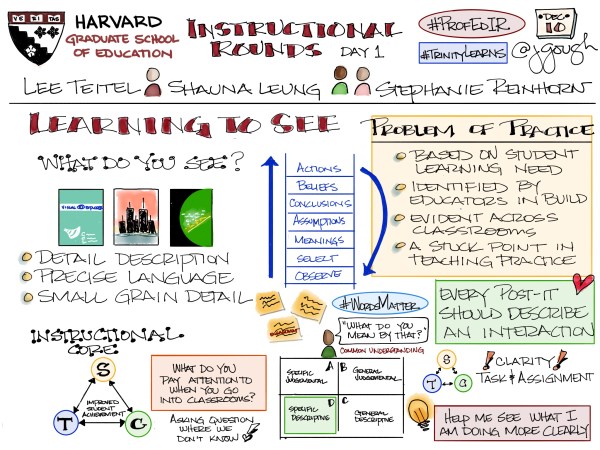 VE RI TAS
HARVARD
GRADUATE SCHOOL
OF EDUCATION
INSTRUCTIONAL
ROUNDS DAY 1
#PROFEDIR
#TRINITYLEARNS
DEC
10
@jgough
LEE TEITEL SHAUNA LEUNG STEPHANIE REINHORN
LEARNING TO SEE
WHAT DO YOU SEE?
DETAIL DESCRIPTION
PRECISE LANGUAGE
SMALL GRAIN DETAIL
ACTIONS
BELIEFS
CONCLUSIONS
ASSUMPTIONS
MEANINGS
SELECT
OBSERVE
PROBLEM OF PRACTICE
BASED ON STUDENT
LEARNING NEED
IDENTIFIED BY
EDUCATORS IN BUILD
EVIDENT ACROSS
CLASSROOMS
A STUCK POINT IN
TEACHING PRACTICE
#WORDSMATTER
"WHAT DO YOU
MEAN BY THAT?"
COMMON UNDERSTANDING
EVERY POST-IT
SHOULD DESCRIBE
AN INTERACTION
INSTRUCTIONAL
CORE
S
IMPROVED
STUDENT
ACHIEVEMENT
T C
WHAT DO YOU
PAY ATTENTION TO
WHEN YOU GO
INTO CLASSROOMS?
ASKING QUESTION
WHERE WE
DON'T KNOW
A
SPECIFIC
JUDGEMENTAL
B
GENERAL
JUDGEMENTAL
D
SPECIFIC
DESCRIPTIVE
C
GENERAL
DESCRIPTIVE
S
T C
! CLARITY !
TASK & ASSIGNMENT
HELP ME SEE WHAT I
AM DOING MORE CLEARLY